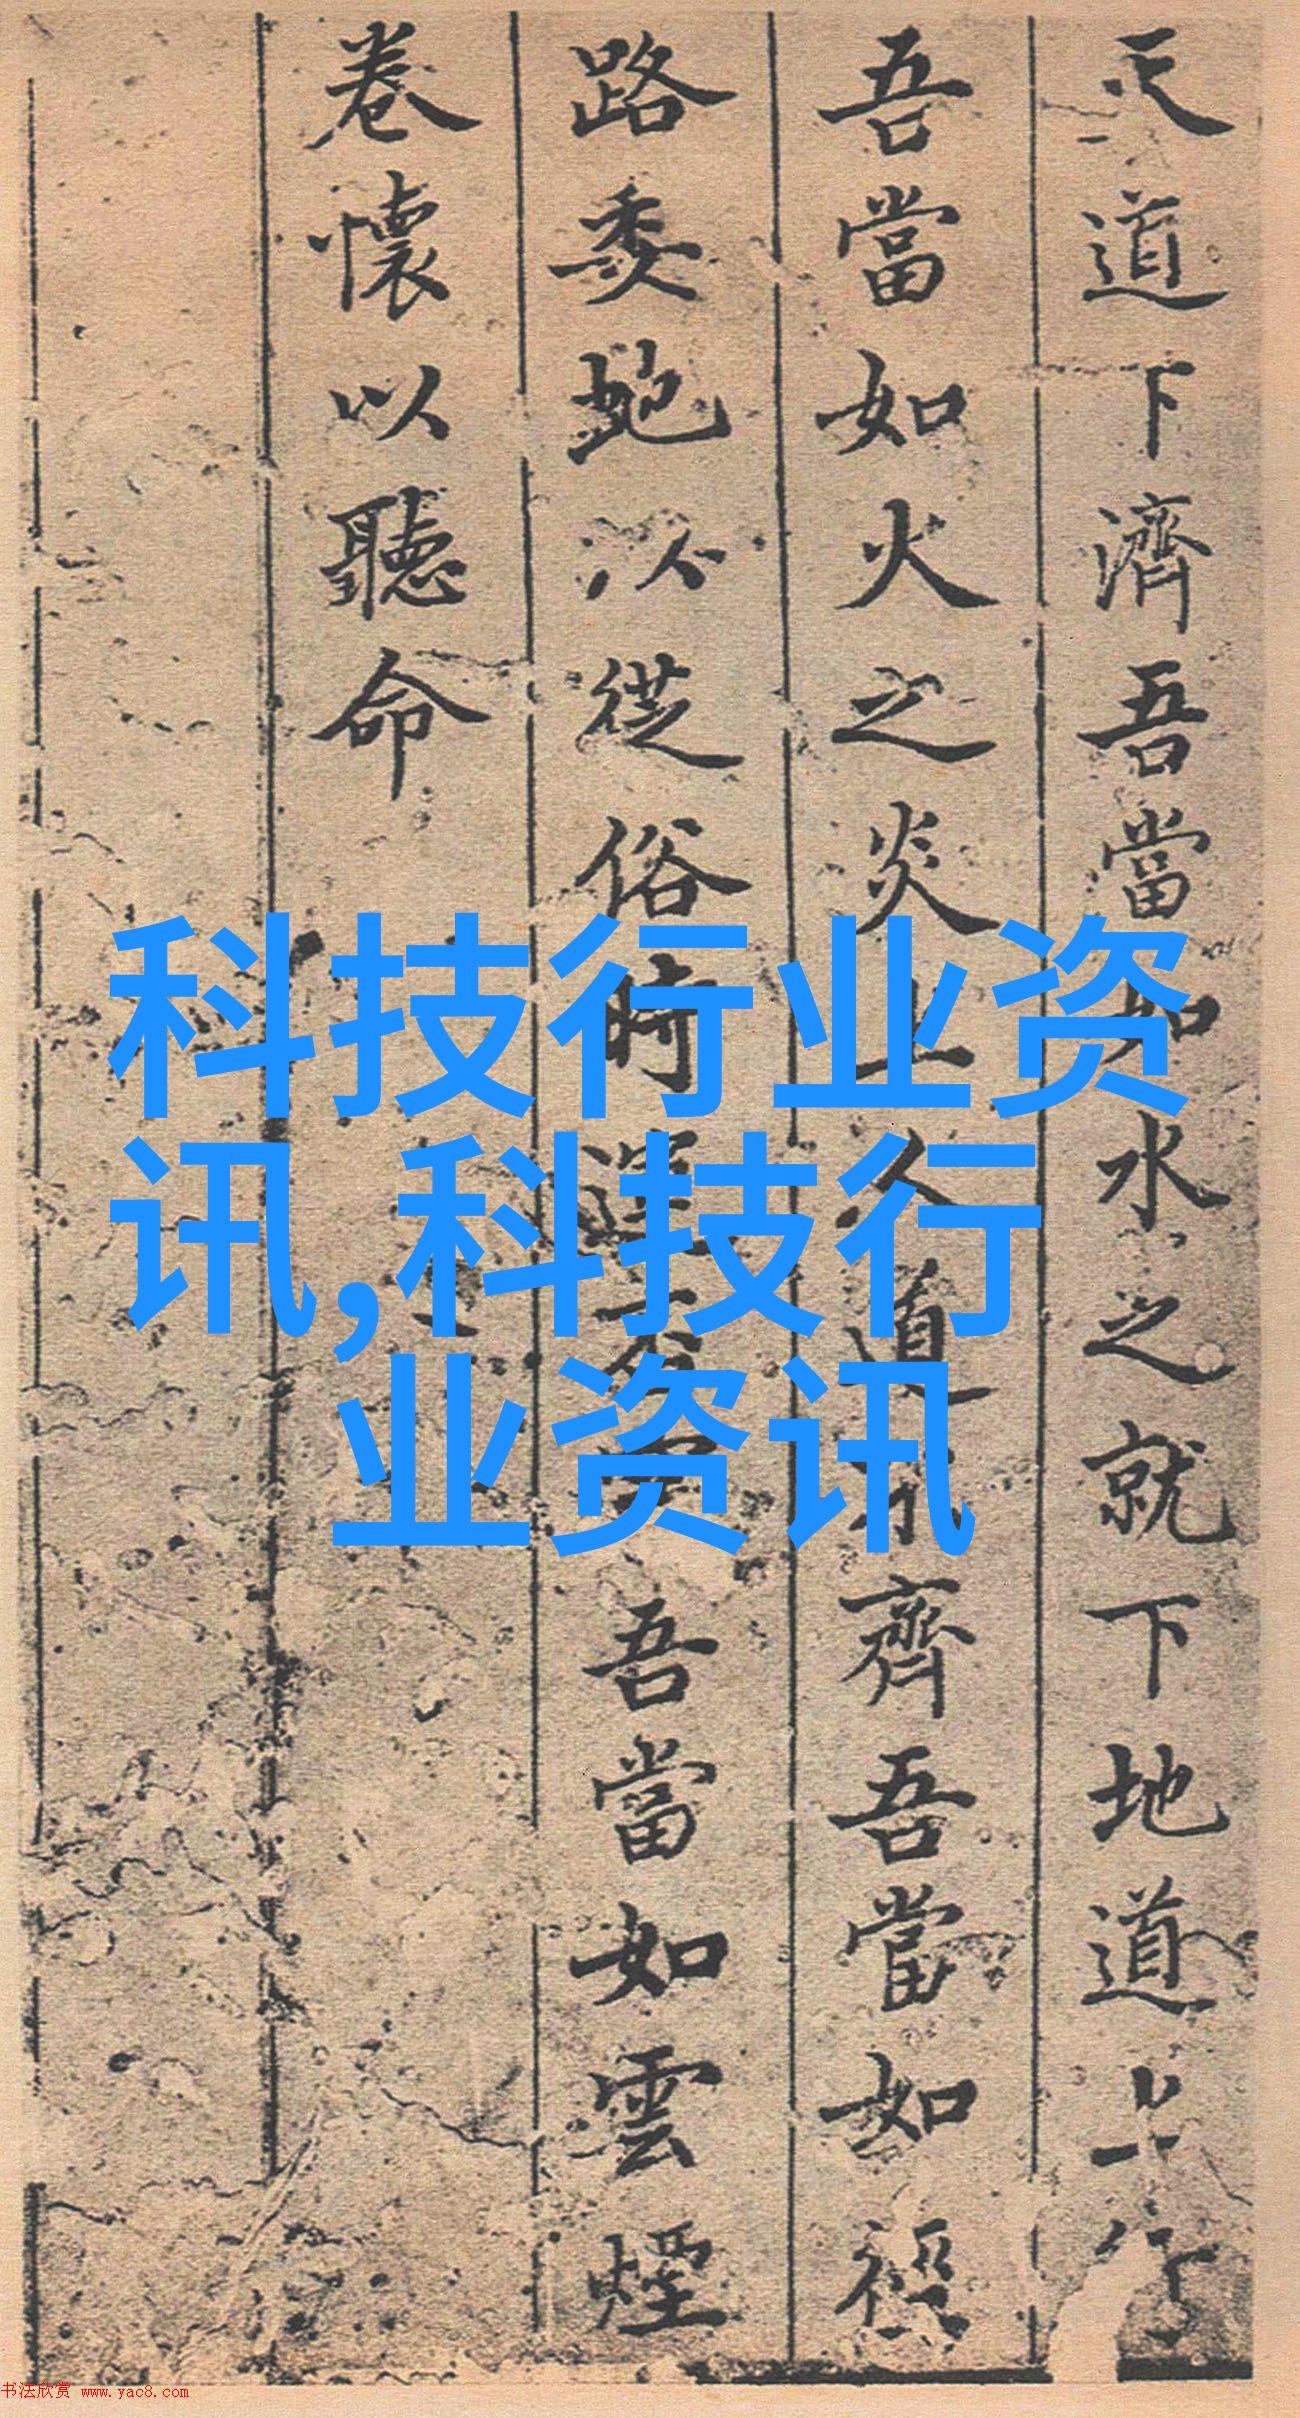 天道下濟吾當如水之就下地道上行
吾當如火之炎上人道齊吾當如徑
路委虵以從俗時運吾當如雲煙
卷懷以聽命
科技行业资
讯,科技行
业资讯
书法欣赏 www.yac8.com